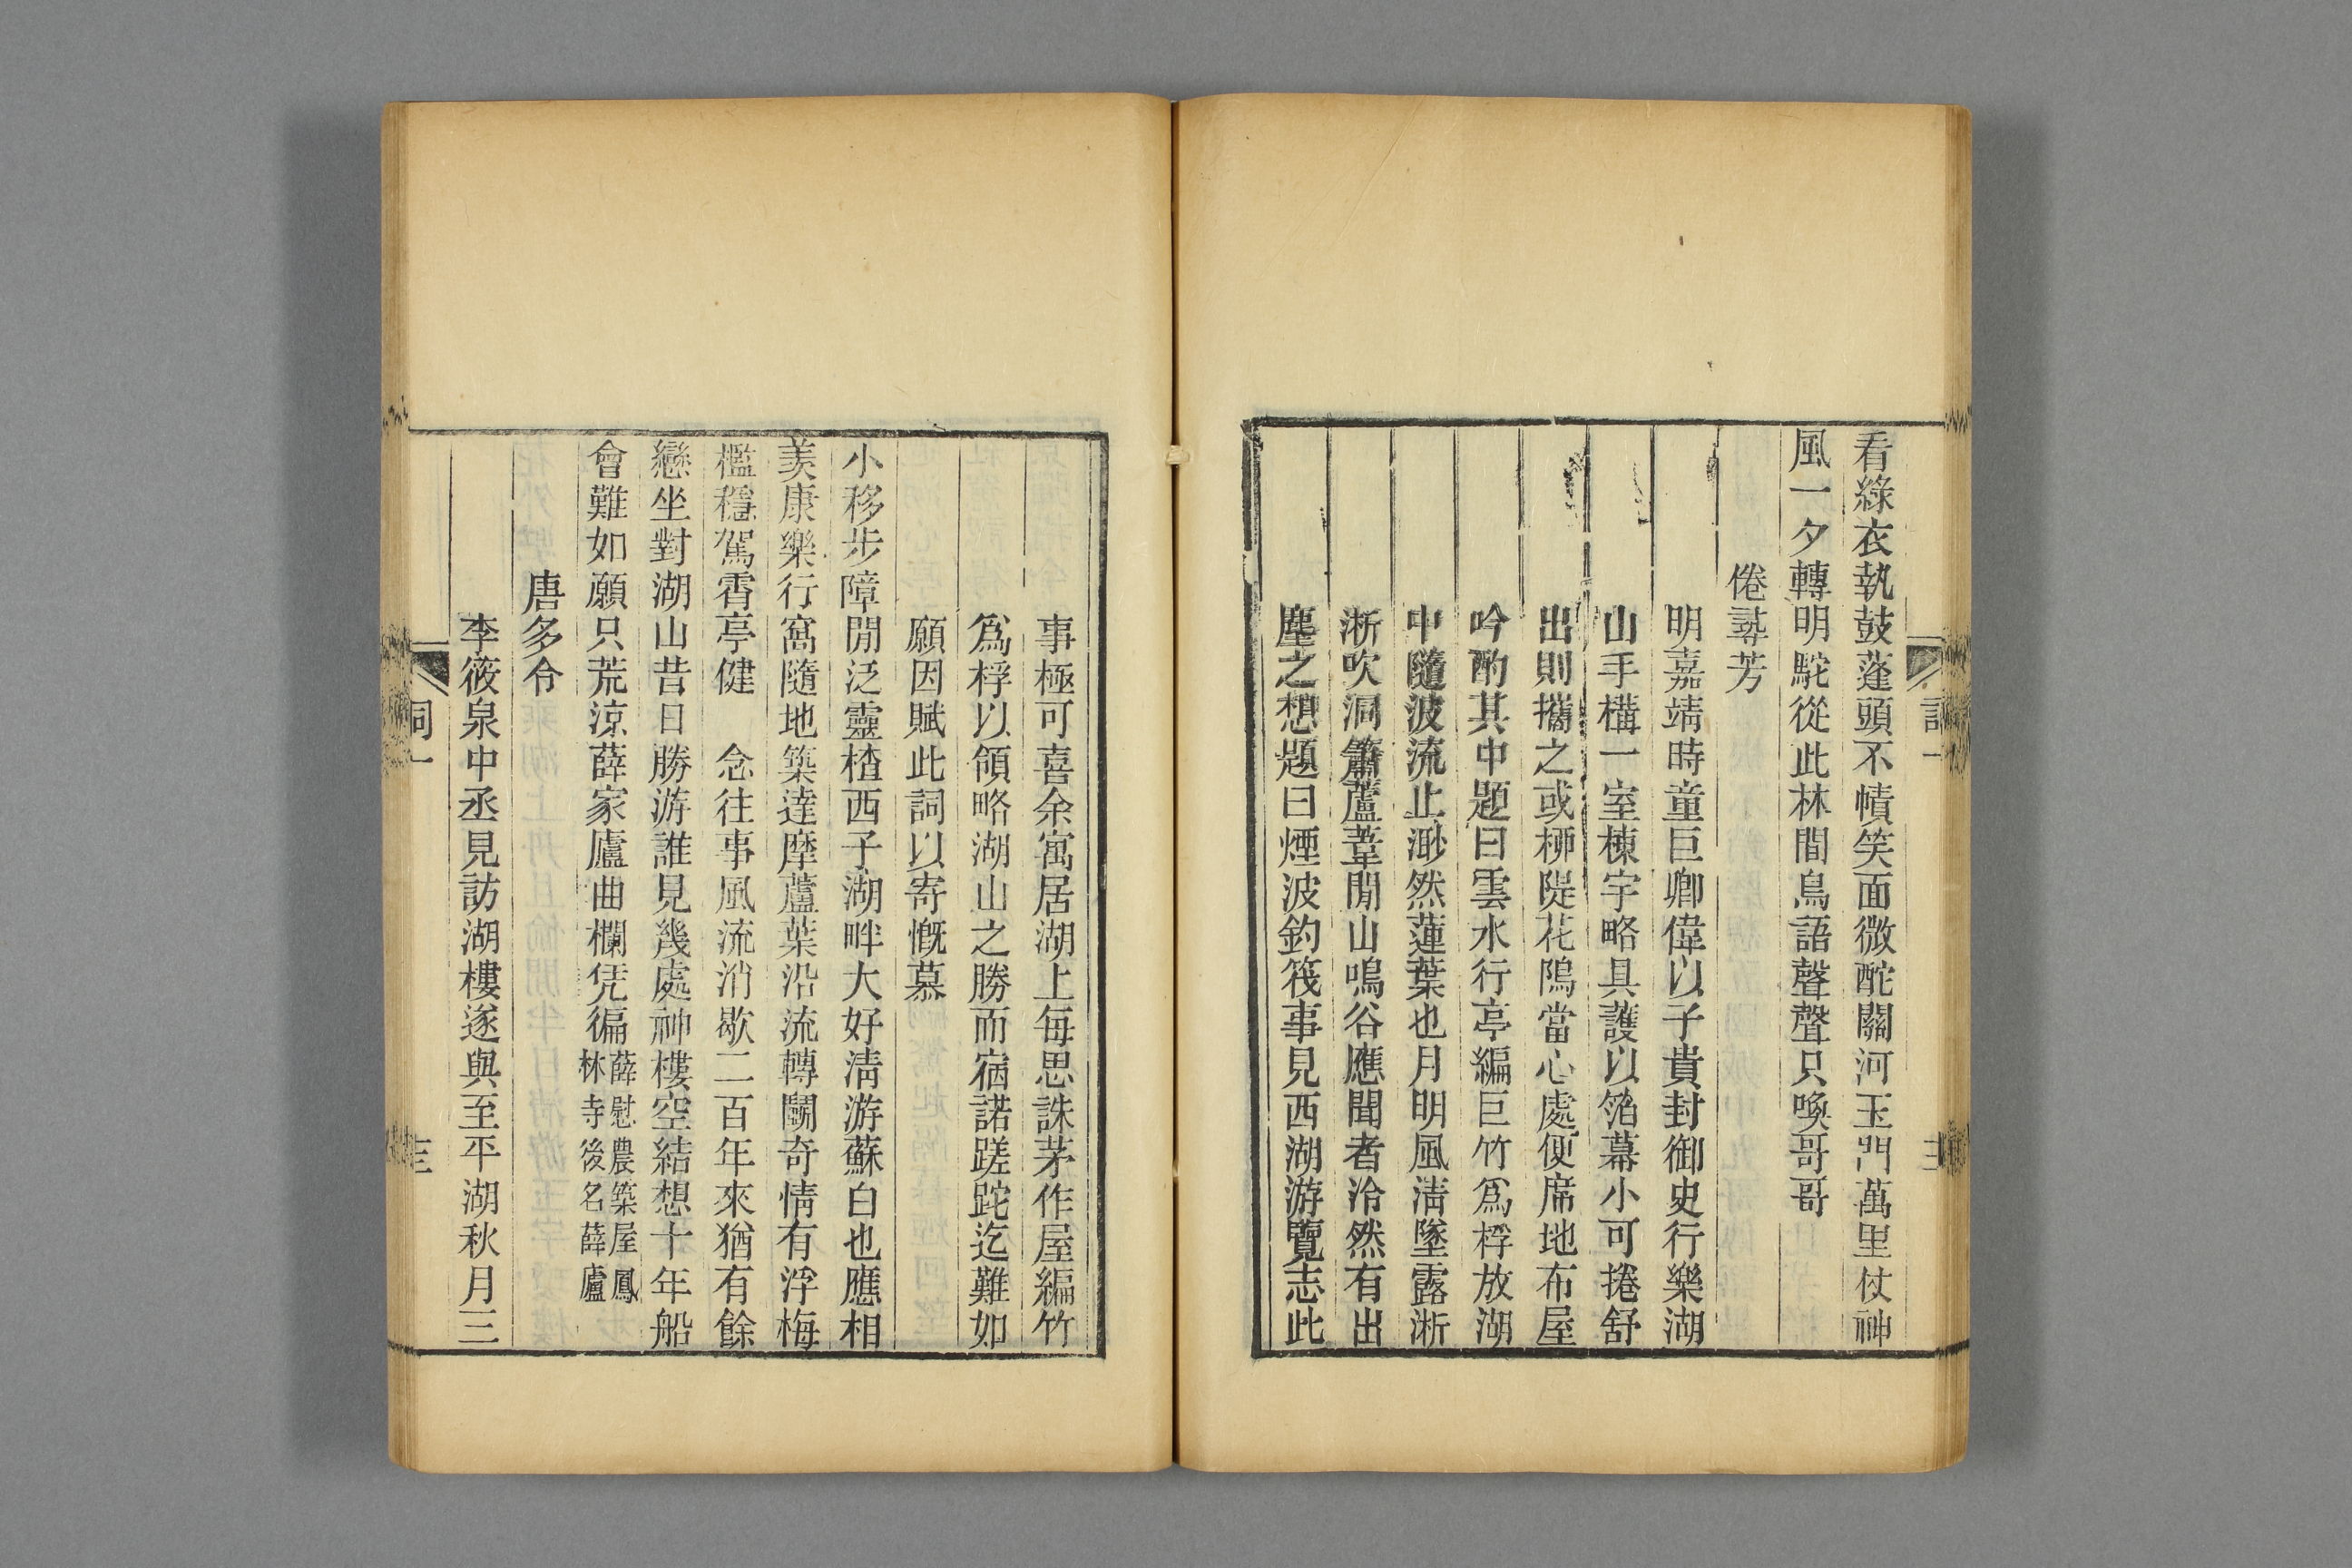 看綠衣執鼓蓬頭不幘笑面微酡關河玉門萬里仗神
風一夕轉明駝從此林間鳥語聲聲只喚哥哥
倦尋芳
明嘉靖時童巨卿偉以子貴封御史行樂湖
山手構一室棟宇略具護以箔幕小可捲舒
出則攜之或柳隄花隖當心處便席地布屋
吟酌其中題曰雲水行亭編巨竹爲桴放湖
中隨波流止渺然蓮葉也月明風淸墜露淅
淅吹洞簫蘆葦閒山鳴谷應聞者泠然有出
塵之想題曰煙波釣筏事見西湖游覽志此
事極可喜余寓居湖上每思誅茅作屋編竹
爲桴以領略湖山之勝而宿諾蹉跎迄難如
願因賦此詞以寄慨慕
小移步障閒泛靈楂西子湖畔大好淸游蘇白也應相
羨康樂行窩隨地築達摩蘆葉沿流轉鬭奇情有浮梅
檻穩駕霄亭健　念往事風流消歇二百年來猶有餘
戀坐對湖山昔日勝游誰見幾處神樓空結想十年船
會難如願只荒涼薛家廬曲欄凭徧薛慰農築屋鳳
林寺後名薛廬
唐多令
李筱泉中丞見訪湖樓遂與至平湖秋月三
詞一